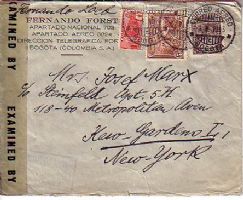 Fernando Forst
FERNANDO FORST
APARTADO NACIONAL
APARTADO AEREO
DIRECCION TELEGRAFICA FOR
BOGOTA (COLOMBIA S. A.)
EXAMINED BY
EXAMINED BY
Mrs. Josef Marx
c/o Steinfeld Apt. 5H
118-40 Metropolitan Aven
Kew-Gardens L.I.
New-York